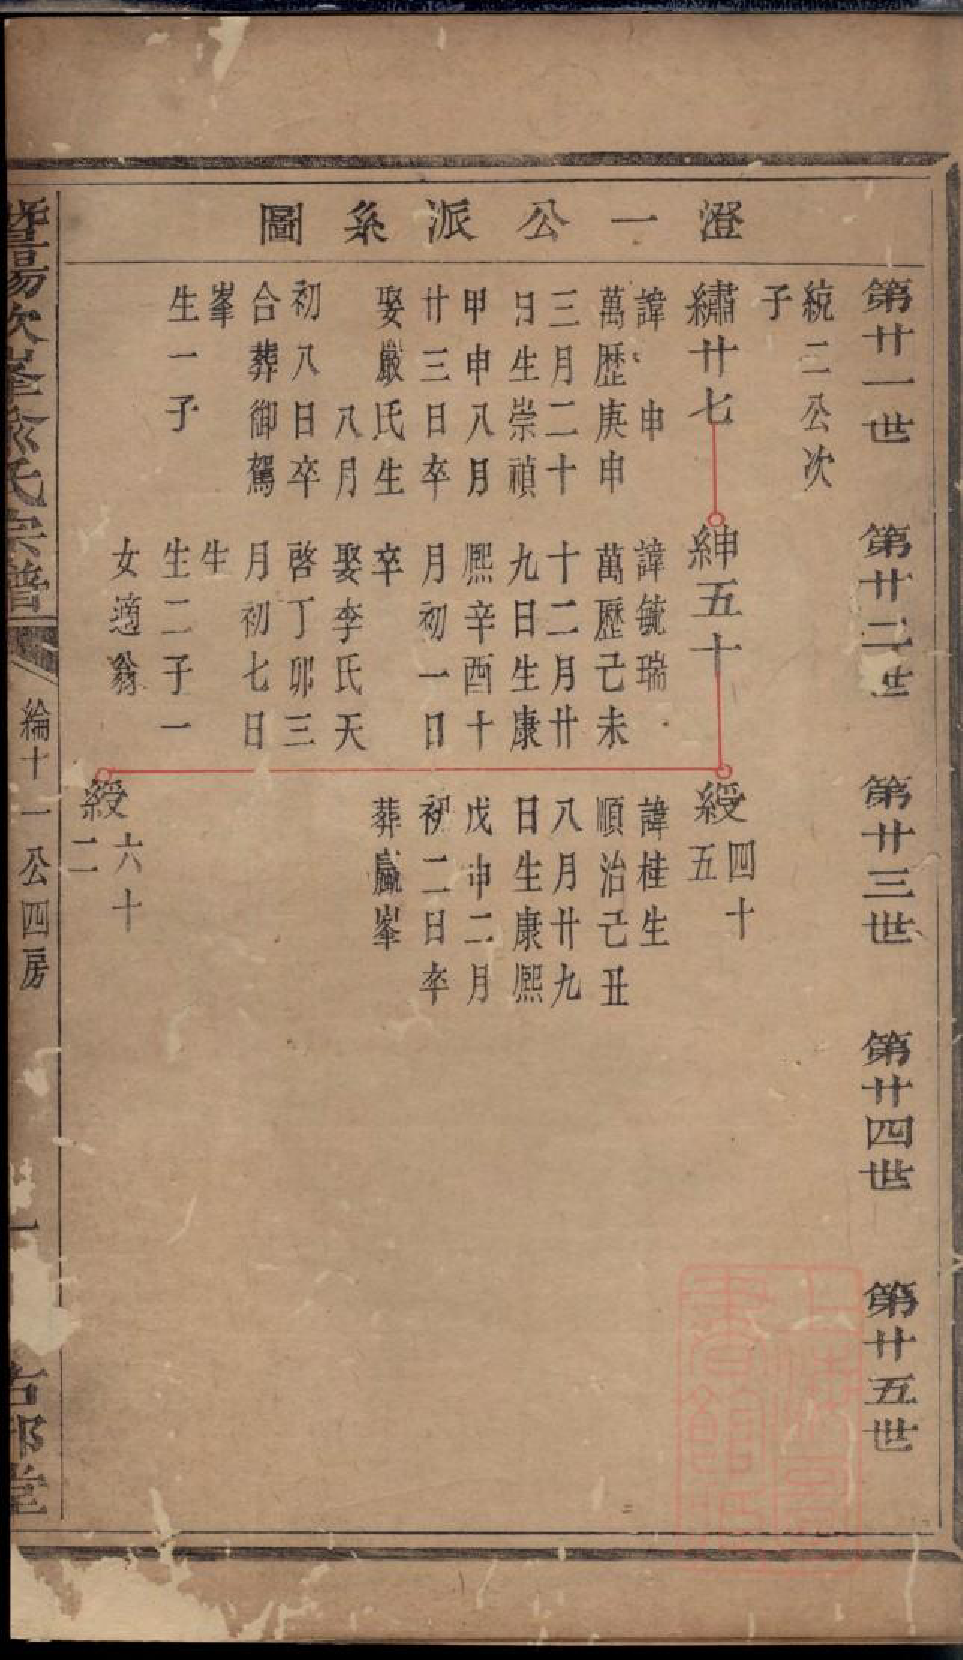 澄一公派系圖
第廿一世
第廿二世
第廿三世
第廿四世
第廿五世
統二公次
子
繡廿七
諱申
萬歷庚申
三月二十
日生崇禎
甲申八月
廿三日卒
娶嚴氏生
八月
初八日卒
合葬御駕
峯
生一子
紳五十
諱毓瑞
萬歷己未
十二月廿
九日生康
熙辛酉十
月初一日
卒
娶李氏天
啓丁卯三
月初七日
生
生二子一
女適翁
綬四十五
諱桂生
順治己丑
八月廿九
日生康熙
戊申二月
初二日卒
葬贏峯
綬六十二
暨陽次峯俞氏宗譜
綸十一公四房